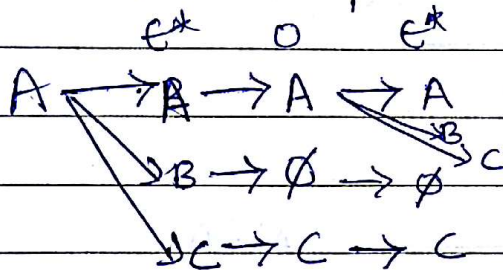 ε* 0 ε*
A → A → A → A
B
C
B → ∅ → ∅
C → C → C